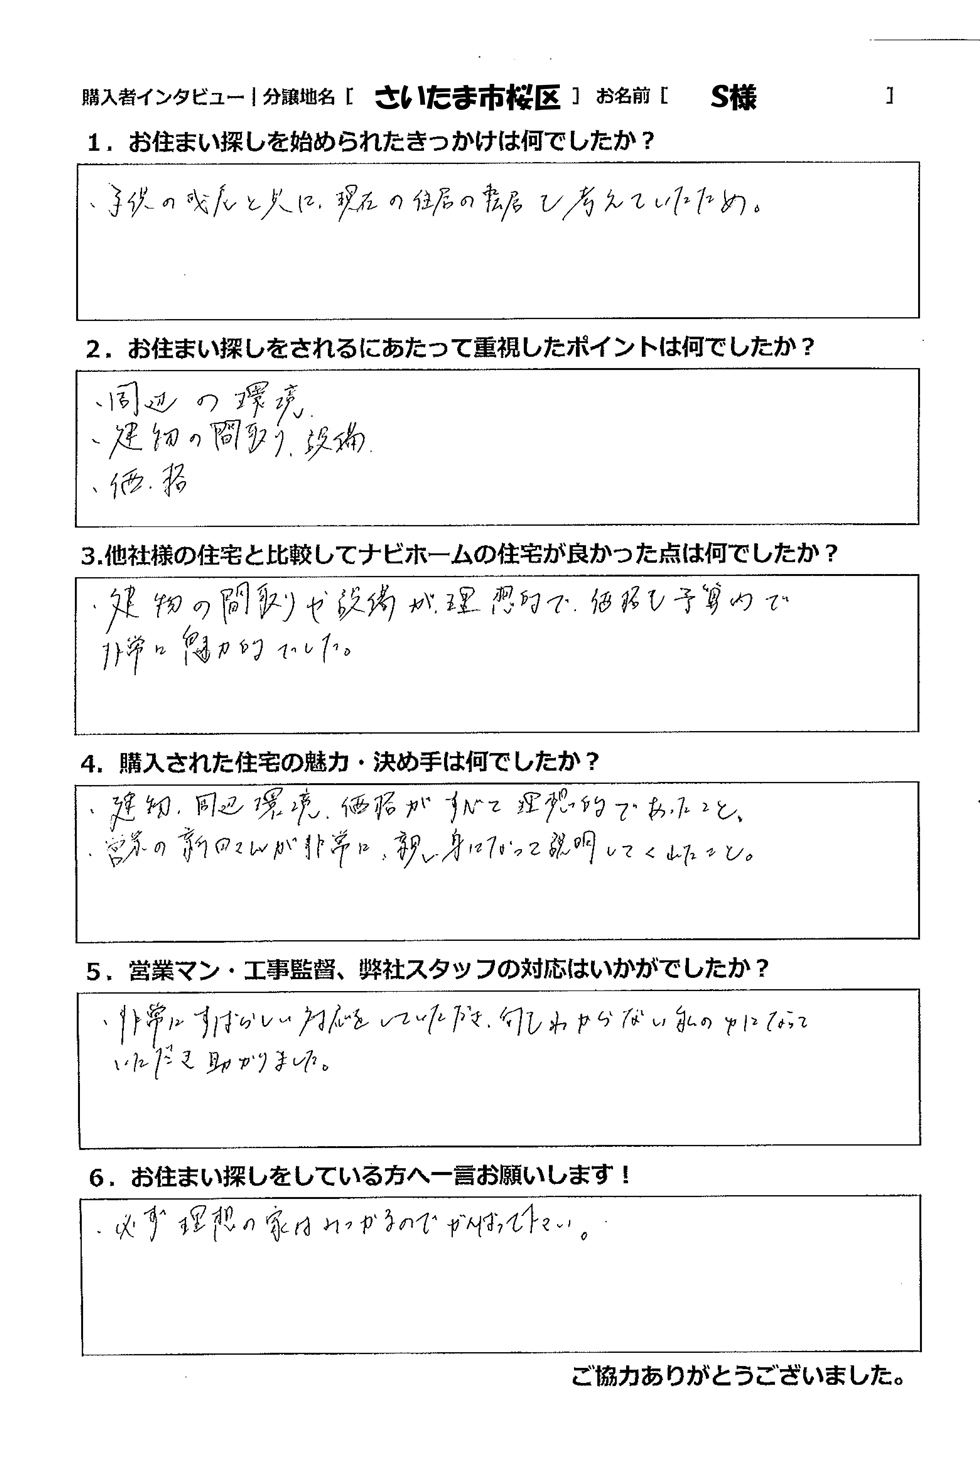 購入者インタビュー｜分譲地名［ さいたま市桜区 ］ お名前［ S様 ］
１．お住まい探しを始められたきっかけは何でしたか？
・子供の成長と共に、現在の住居の転居も考えていたため。
２．お住まい探しをされるにあたって重視したポイントは何でしたか？
・周辺の環境
・建物の間取り、設備
・価格
3.他社様の住宅と比較してナビホームの住宅が良かった点は何でしたか？
・建物の間取りや設備が、理想的で、価格も予算内で
非常に魅力的でした。
４．購入された住宅の魅力・決め手は何でしたか？
・建物、周辺環境、価格がすべて理想的であったこと、
・営業の新田さんが非常に、親身になって説明してくれたこと。
５．営業マン・工事監督、弊社スタッフの対応はいかがでしたか？
・非常にすばらしい対応をしていただき、何もわからない私の力になって
いただき助かりました。
６．お住まい探しをしている方へ一言お願いします！
・必ず理想の家はみつかるのでがんばって下さい。
ご協力ありがとうございました。